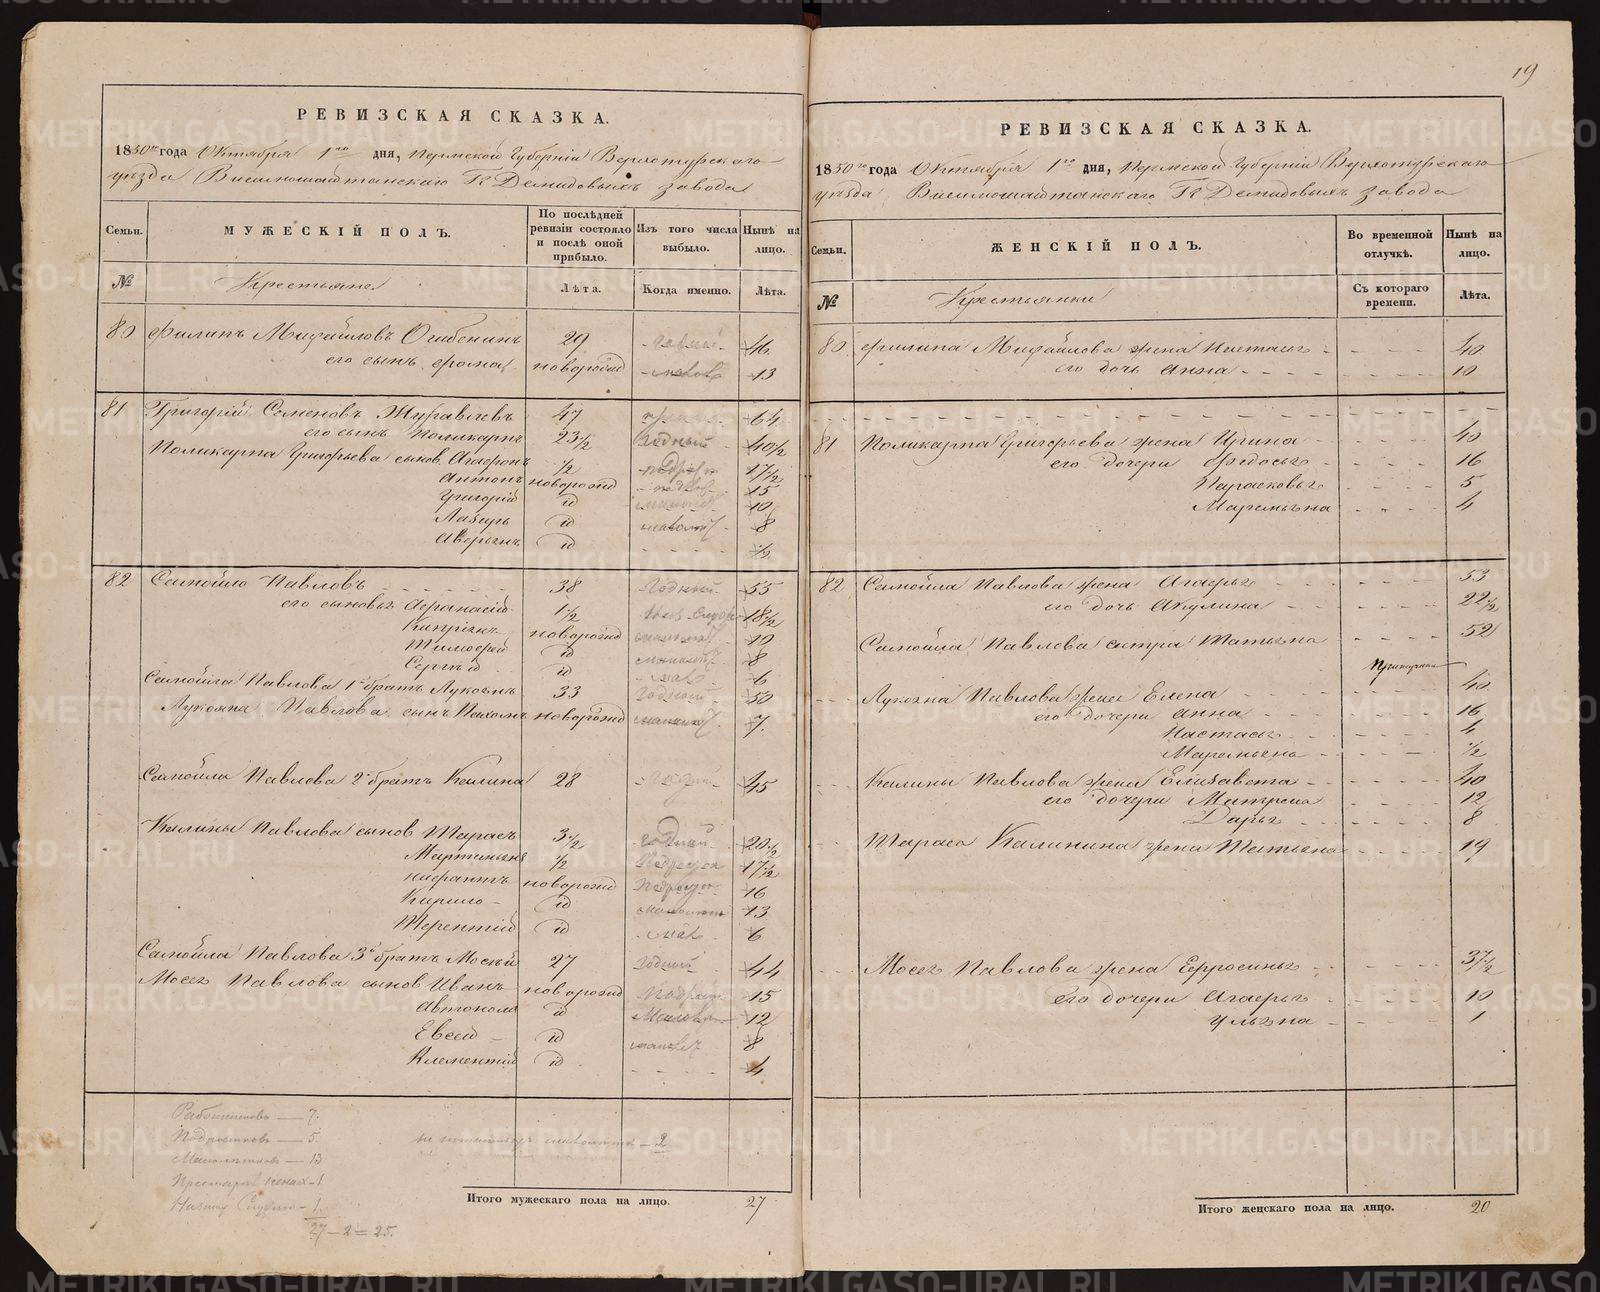 РЕВИЗСКАЯ СКАЗКА.
1850го года Октября 1го дня, Пермской Губерніи Верхотурскаго
уезда Висимошайтанскаго Гг. Демидовыхъ завода
Семьи. МУЖЕСКІЙ ПОЛЪ. По послѣдней ревизіи состояло и послѣ оной прибыло. Изъ того числа выбыло. Нынѣ на лицо.
№ Крестьяне Лѣта. Когда именно. Лѣта.
80 Филипъ Михайловъ Огибенинъ 29 46
его сынъ Фома новорожд 13
81 Григорій Семеновъ Журавлевъ 47 64
его сынъ Поликарпъ 23 1/2 годный 40 1/2
Поликарпа Григорьева сынов. Агафонъ 1/2 17 1/2
Антонъ новорожд 15
Григорій id 10
Лазарь id 8
Аверьянъ id 1/2
82 Самойло Павловъ 38 годный 55
его сыновья Афанасій 1 1/2 18 1/2
Кипріянъ новорожд 10
Тимофей id 8
Сергѣй id 6
Самойла Павлова 1й братъ Лукоянъ 33 годной 50
Лукояна Павлова сынъ Пахомъ новорожд 7
Самойла Павлова 2й братъ Калина 28 45
Калины Павлова сынов Тарасъ 3 1/2 годный 20 1/2
Мартиньянъ 1/2 17 1/2
Нифантъ новорожд 16
Кирило id 13
Терентій id 6
Самойла Павлова 3й братъ Мосѣй 27 годный 44
Мосея Павлова сынов Иванъ новорожд 15
Автономъ id 12
Евсей id 8
Клементій id 4
Работниковъ — 7.
Подростковъ — 5.
Малолѣтковъ — 13
27 – 2 = 25.
Итого мужескаго пола на лицо. 27
19
РЕВИЗСКАЯ СКАЗКА.
1850го года Октября 1го дня, Пермской Губерніи Верхотурскаго
уезда Висимошайтанскаго Гг. Демидовыхъ завода
Семьи. ЖЕНСКІЙ ПОЛЪ. Во временной отлучкѣ. Нынѣ на лицо.
№ Крестьянки Съ котораго времени. Лѣта.
80 Филипа Михайлова жена Настасья 40
его дочь Анна 10
81 Поликарпа Григорьева жена Ирина 40
его дочери Федосья 16
Парасковья 5
Маремьяна 4
82 Самойла Павлова жена Агафья 53
его дочь Акулина 22 1/2
Самойла Павлова сестра Татьяна 52
Лукояна Павлова жена Елена 40
его дочери Анна 16
Настасья 4
Маремьяна 1/2
Калины Павлова жена Елизавета 40
его дочери Матрена 12
Дарья 8
Тараса Калинина жена Татьяна 19
Мосея Павлова жена Ефросинья 37 1/2
Его дочери Агафья 10
Ульяна 1
Итого женскаго пола на лицо. 20
METRIKI.GASO-URAL.RU